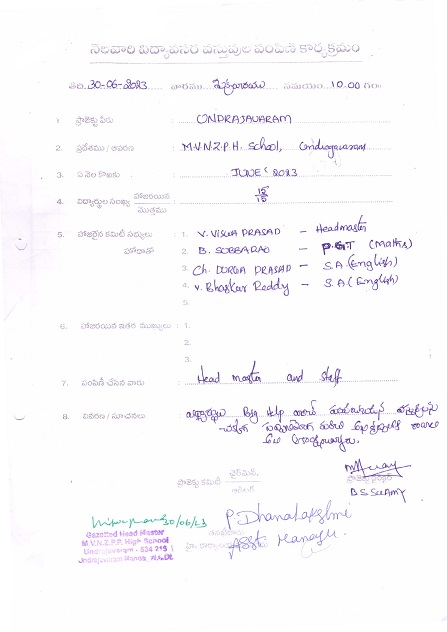 నెలవారి విద్యావసర వస్తువుల పంపిణి కార్యక్రమం
తేది. 30-06-2023 వారము శుక్రవారము సమయం. 10.00 గం.
1 ప్రాజెక్టు పేరు : UNDRAJAVARAM
2. ప్రదేశము / ఆవరణ : M.V.N.Z.P.H. School, Undrajavaram
3. ఏ నెల కొఱకు : JUNE 2023
4. విద్యార్థుల సంఖ్య హాజరయిన / మొత్తము : 15/15
5. హాజరైన కమిటీ సభ్యులు : 1. V. VISWA PRASAD – Headmaster
హోదాతో 2. B. SUBBARAO – P.G.T (Maths)
3. Ch. DURGA PRASAD – S.A.(English)
4. V. Bhaskar Reddy – S.A (English)
5.
6. హాజరయిన ఇతర ముఖ్యులు : 1.
2.
3.
7. పంపిణీ చేసిన వారు : Head master and staff
8. వివరణ / సూచనలు : విద్యార్థులు Big Help వారు
ప్రాజెక్టు కమిటీ ఛైర్‌మన్,
B.S. SWAMY
30/06/23
P. Dhanalakshmi
Asst Manager.
Gazetted Head Master
M.V.N.Z.P.P. High School
Undrajavaram - 534 215
Undrajavaram Mandal, W.G.Dt.